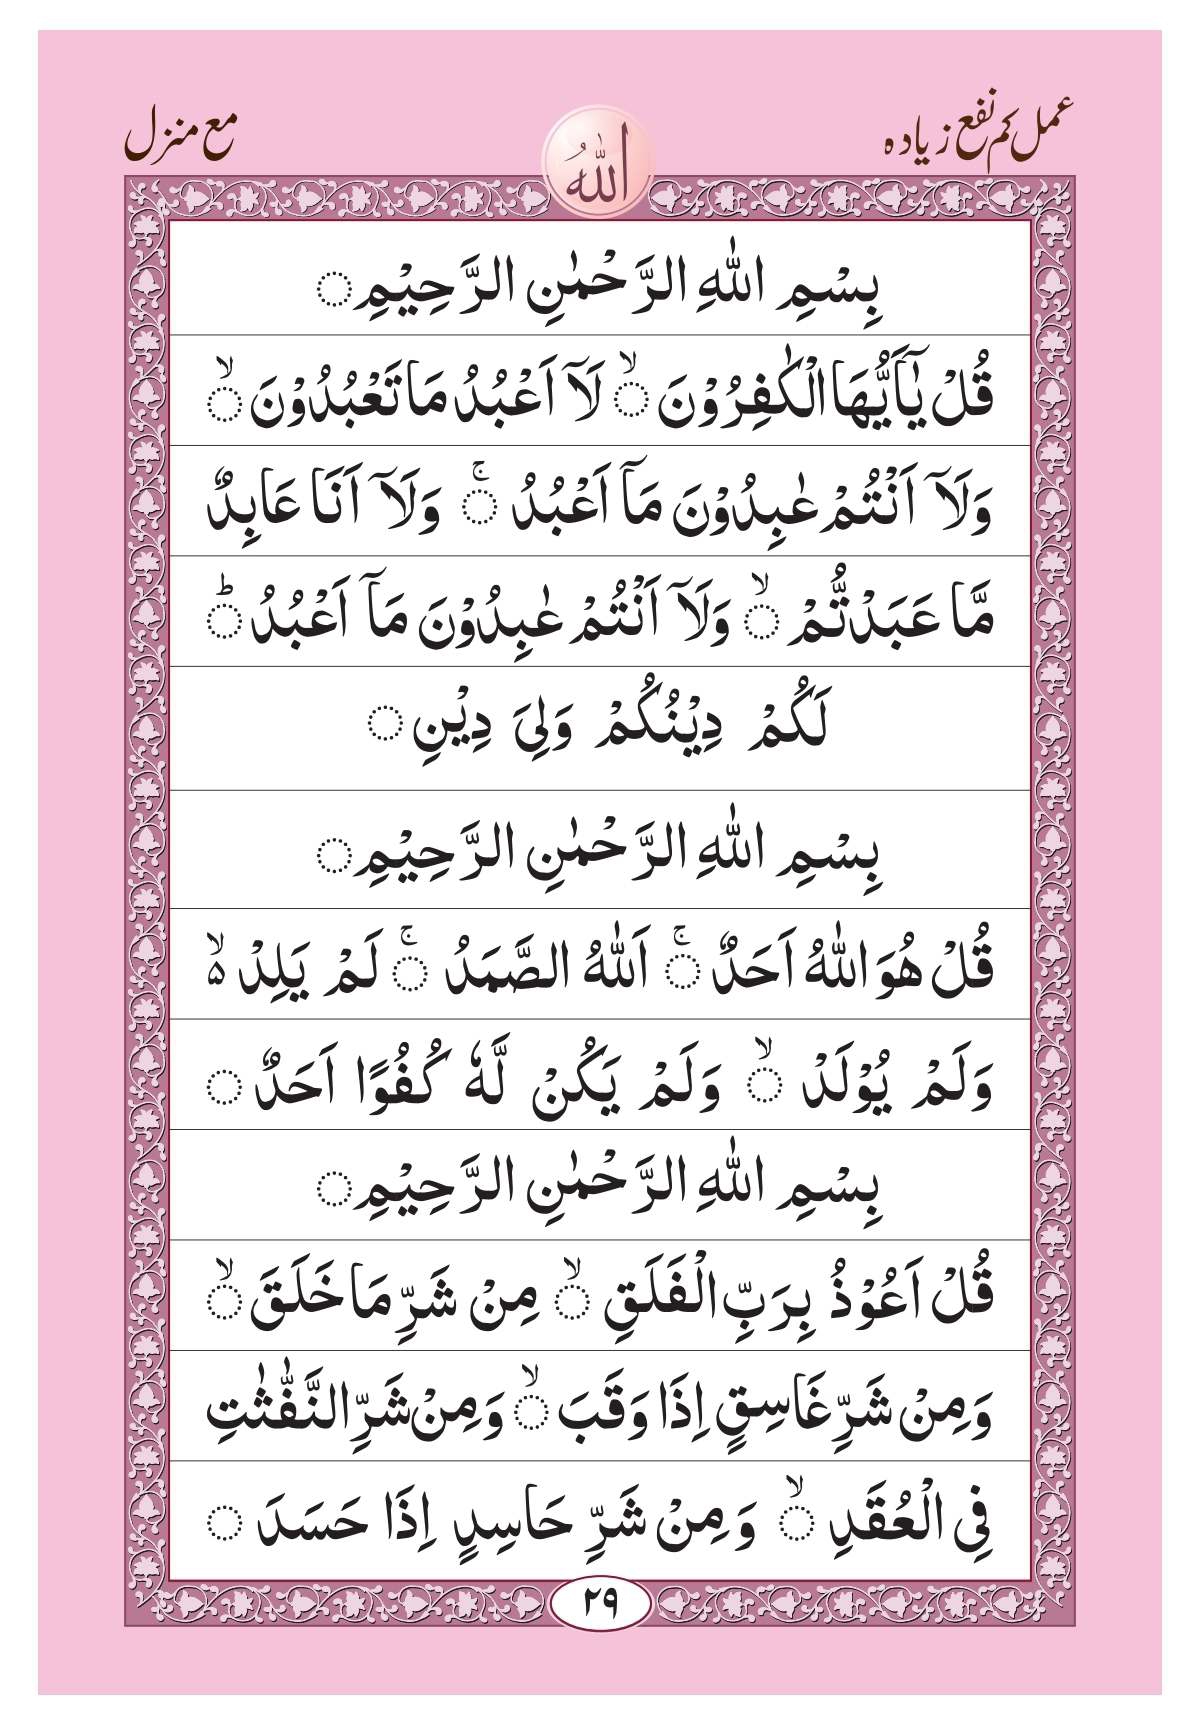 عمل کم نفع زیادہ
اللّٰهُ
مع منزل
بِسْمِ اللّٰهِ الرَّحْمٰنِ الرَّحِيْمِ ◌
قُلْ يٰۤاَيُّهَا الْكٰفِرُوْنَ ◌ۙ لَاۤ اَعْبُدُ مَا تَعْبُدُوْنَ ◌ۙ
وَلَاۤ اَنْتُمْ عٰبِدُوْنَ مَاۤ اَعْبُدُ ◌ۚ وَلَاۤ اَنَا عَابِدٌ
مَّا عَبَدْتُّمْ ◌ۙ وَلَاۤ اَنْتُمْ عٰبِدُوْنَ مَاۤ اَعْبُدُ ◌ؕ
لَكُمْ دِيْنُكُمْ وَلِىَ دِيْنِ ◌
بِسْمِ اللّٰهِ الرَّحْمٰنِ الرَّحِيْمِ ◌
قُلْ هُوَ اللّٰهُ اَحَدٌ ◌ۚ اَللّٰهُ الصَّمَدُ ◌ۚ لَمْ يَلِدْ ۵ۙ
وَلَمْ يُوْلَدْ ◌ۙ وَلَمْ يَكُنْ لَّهٗ كُفُوًا اَحَدٌ ◌
بِسْمِ اللّٰهِ الرَّحْمٰنِ الرَّحِيْمِ ◌
قُلْ اَعُوْذُ بِرَبِّ الْفَلَقِ ◌ۙ مِنْ شَرِّ مَا خَلَقَ ◌ۙ
وَمِنْ شَرِّ غَاسِقٍ اِذَا وَقَبَ ◌ۙ وَمِنْ شَرِّ النَّفّٰثٰتِ
فِى الْعُقَدِ ◌ۙ وَمِنْ شَرِّ حَاسِدٍ اِذَا حَسَدَ ◌
۲۹